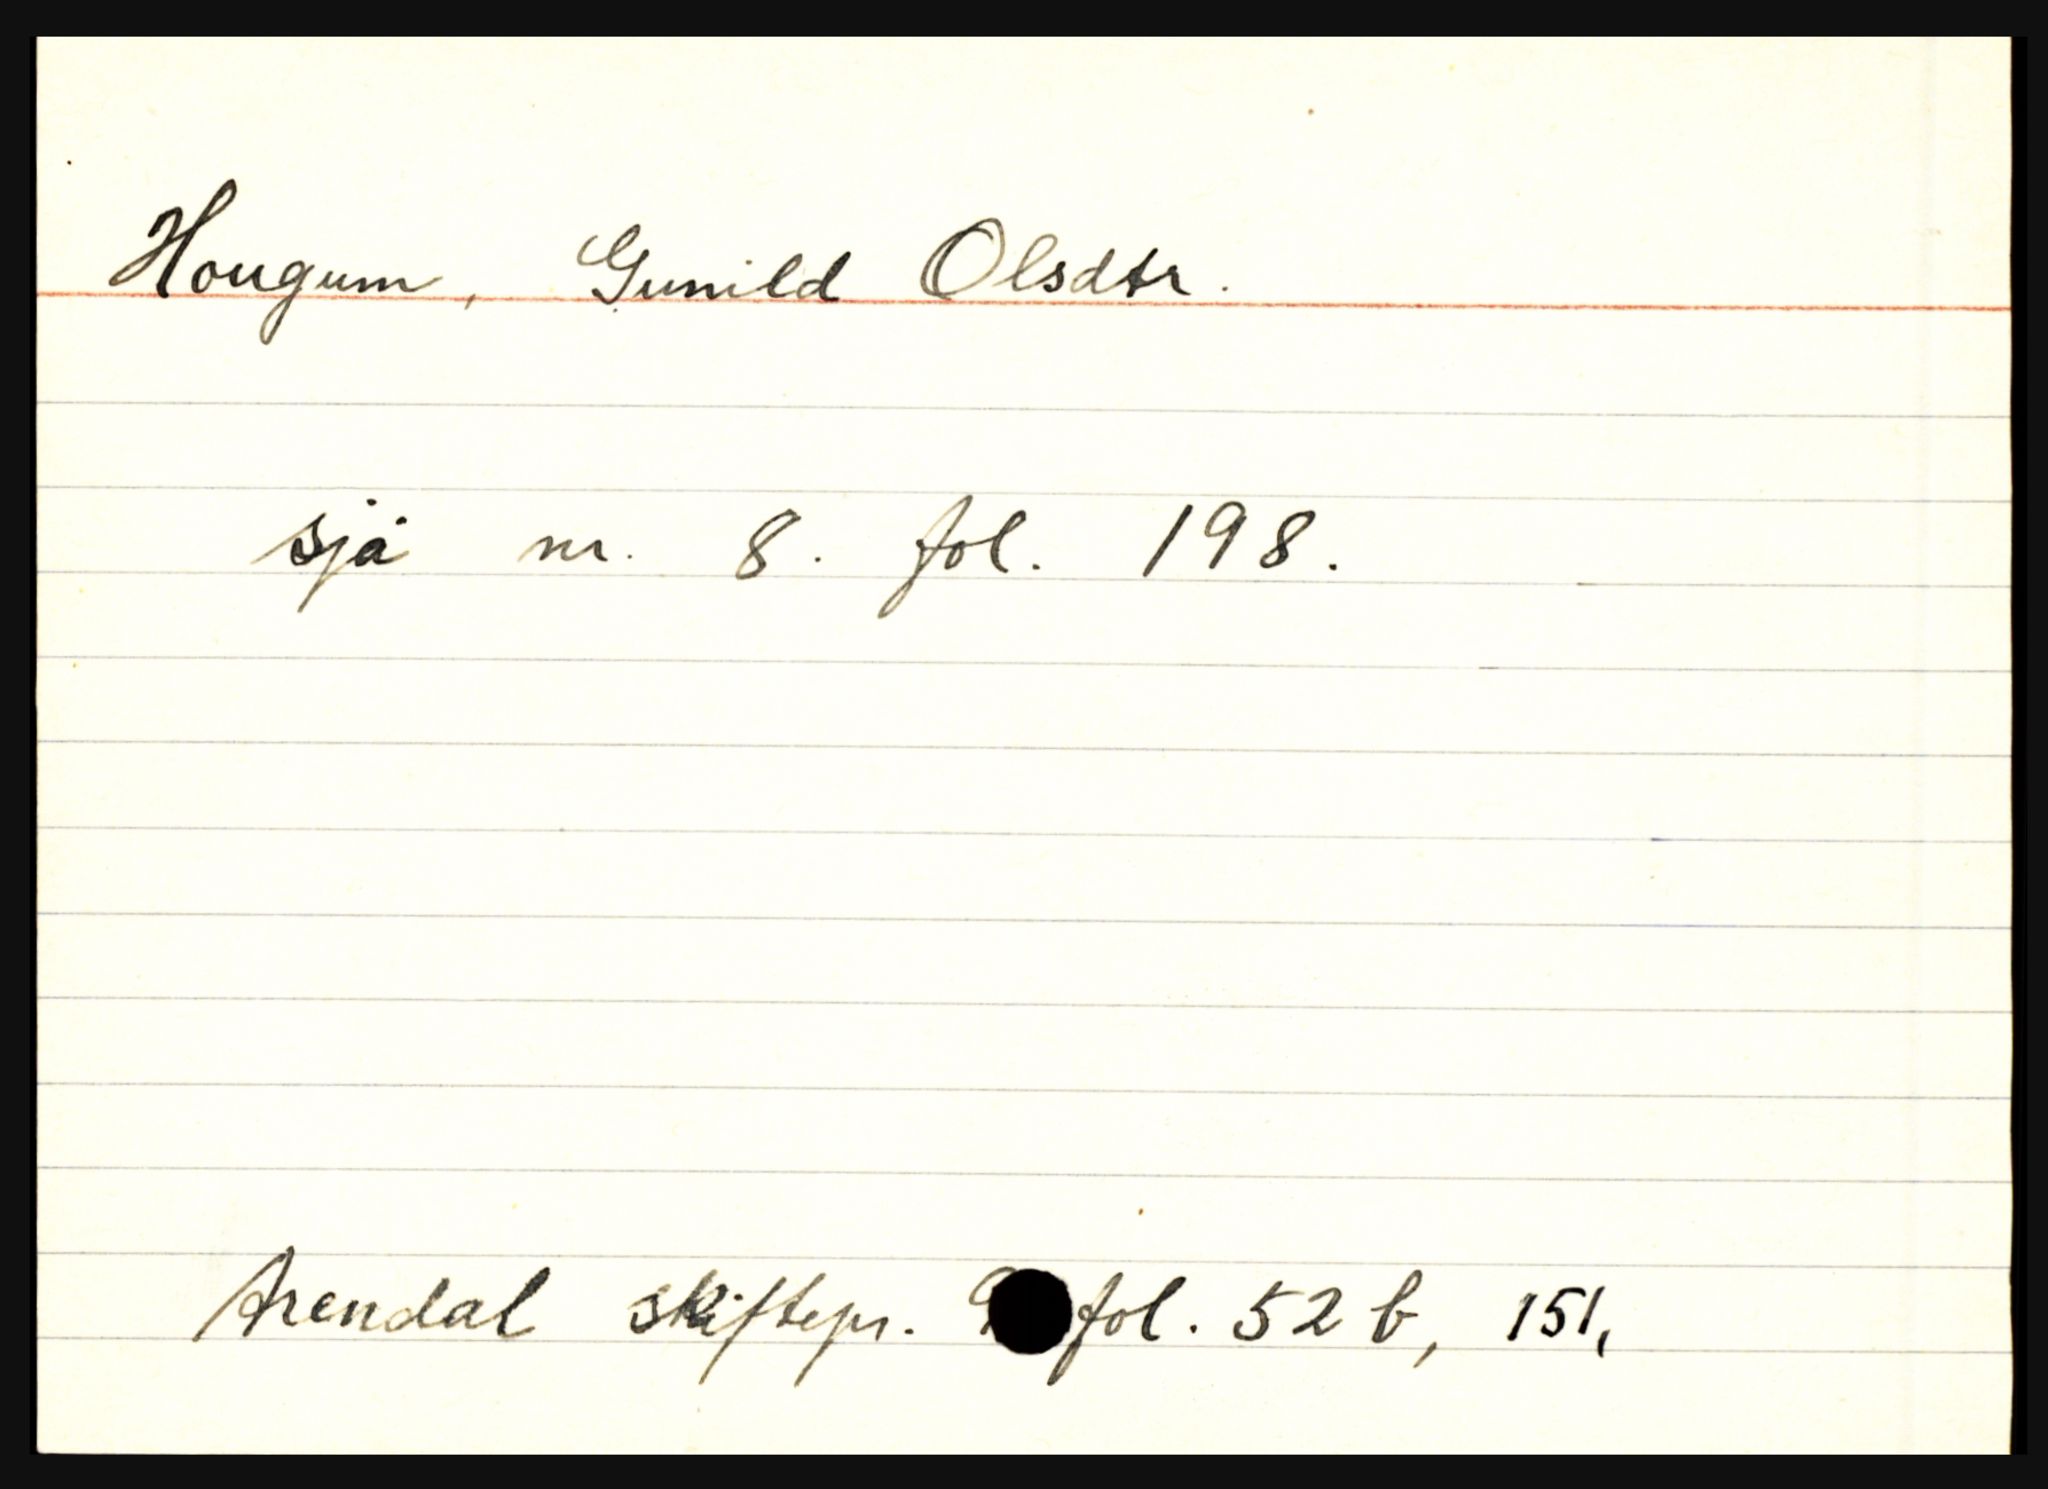 Hougum, Gunild Olsdtr.
sjå nr. 8. fol. 198.
Arendal skiftepr. fol. 52 b, 151,